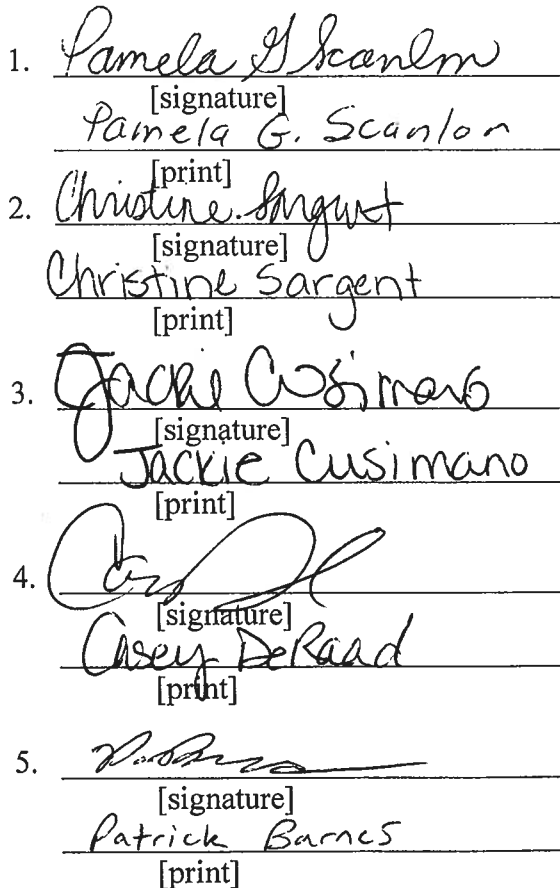 1. Pamela G Scanlon
[signature]
Pamela G. Scanlon
[print]
2. Christine Sargent
[signature]
Christine Sargent
[print]
3. Jackie Cusimano
[signature]
Jackie Cusimano
[print]
4.
[signature]
Casey DeRaad
[print]
5.
[signature]
Patrick Barnes
[print]